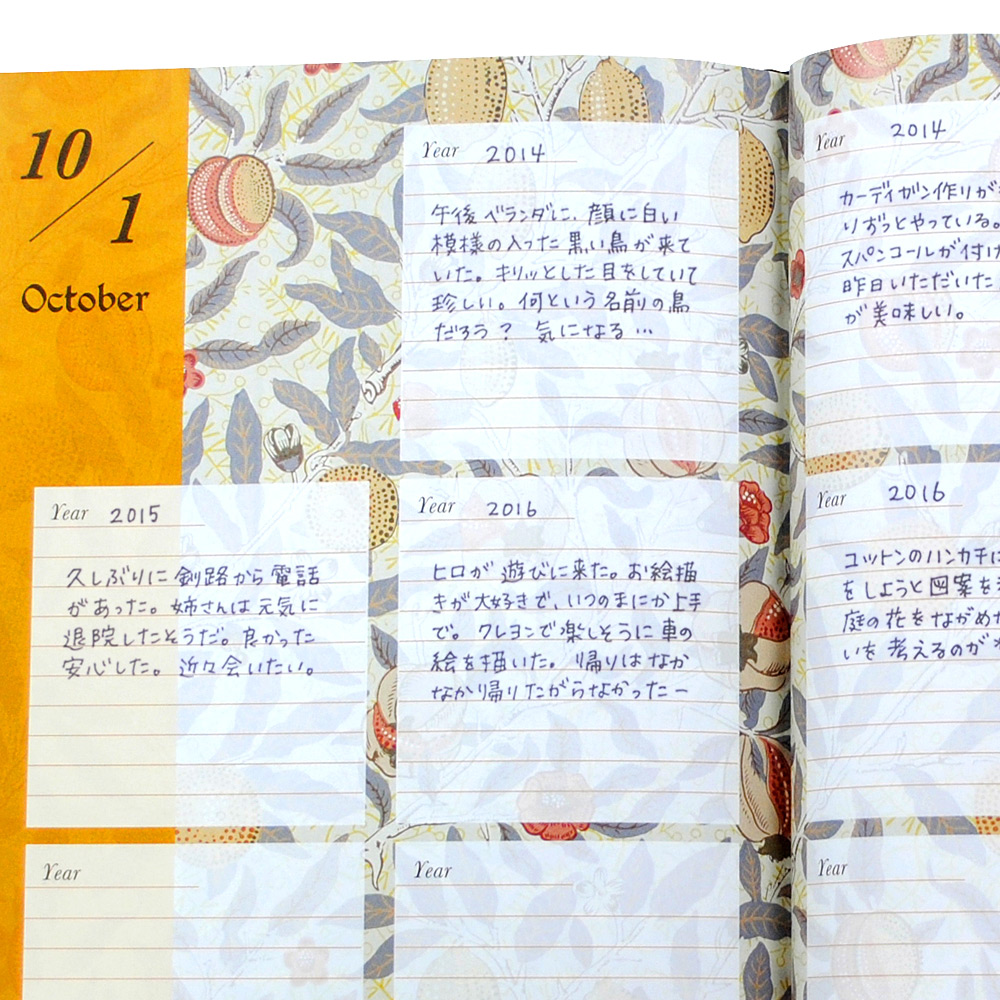 10/1
October
Year 2014
午後 ベランダに、顔に白い
模様の入った黒い鳥が来て
いた。キリッとした目をしていて
珍しい。何という名前の鳥
だろう？ 気になる…
Year 2015
久しぶりに釧路から電話
があった。姉さんは元気に
退院したそうだ。良かった
安心した。近々会いたい。
Year 2016
ヒロが遊びに来た。お絵描
きが大好きで、いつのまにか上手
で。クレヨンで楽しそうに車の
絵を描いた。帰りはなか
なか帰りたがらなかったー
Year
Year
Year 2014
カーディガン作りが
りずっとやっている。
スパンコールが付け
昨日いただいた
が美味しい。
Year 2016
コットンのハンカチに
をしようと図案を
庭の花をながめ
いを考えるのが
Year